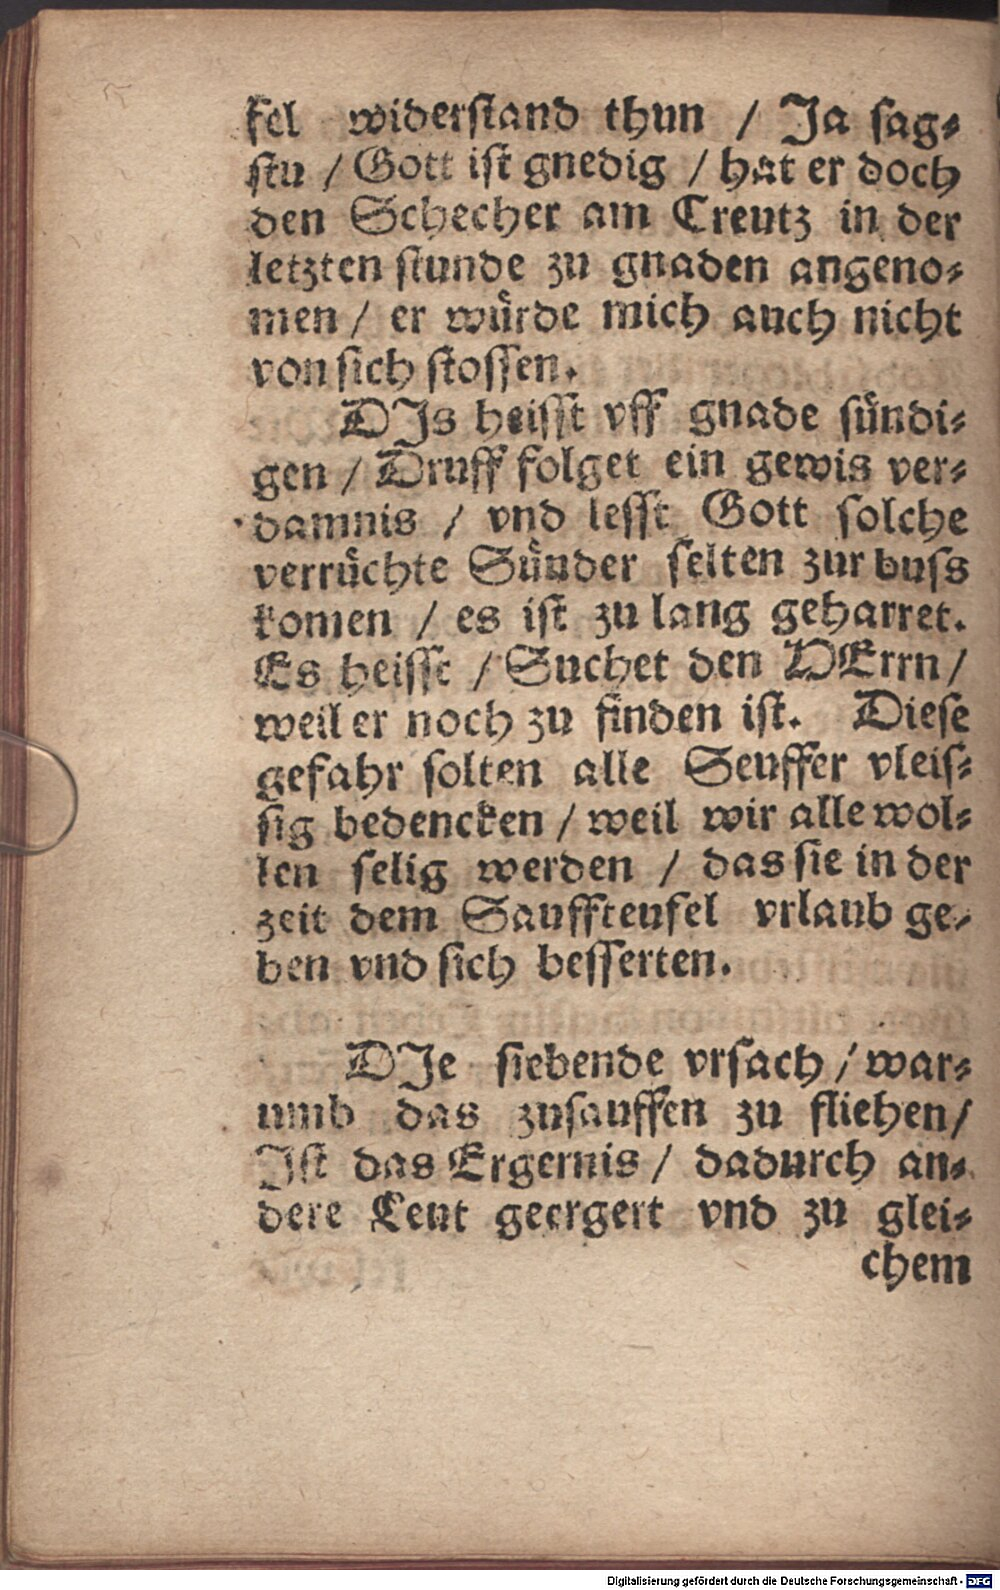 fel widerstand thun / Ja sag-
stu / Gott ist gnedig / hat er doch
den Schecher am Creutz in der
letzten stunde zu gnaden angeno-
men / er würde mich auch nicht
von sich stossen.
DJs heisst vff gnade sündi-
gen / Druff folget ein gewis ver-
damnis / vnd lesst Gott solche
verrüchte Sünder selten zur buss
komen / es ist zu lang geharret.
Es heisst / Suchet den HErrn /
weil er noch zu finden ist. Diese
gefahr solten alle Seuffer vleis-
sig bedencken / weil wir alle wol-
len selig werden / das sie in der
zeit dem Sauffteufel vrlaub ge-
ben vnd sich besserten.
DJe siebende vrsach / war-
umb das zusauffen zu fliehen /
Jst das Ergernis / dadurch an-
dere Leut geergert vnd zu glei-
chem
Digitalisierung gefördert durch die Deutsche Forschungsgemeinschaft - DFG